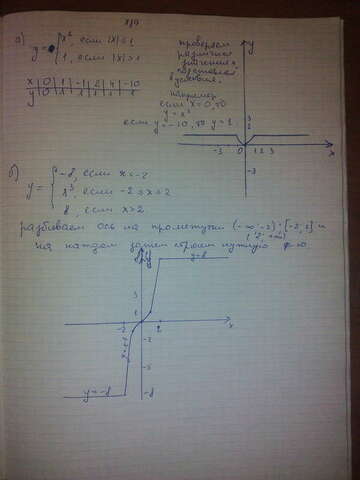 а) y = { x², если |x| ≤ 1
1, если |x| > 1
x | 0 | 1 | -1 | 2 | 4 | -10
y | 0 | 1 | 1 | 1 | 1 | 1
проверяем
различные
значения,
подставляя
в условия.
Например
если x = 0, то
y = x²
если y = -10, то y = 1
y
3
-3 0 1 2 3 x
-3
б) y = { -8, если x < -2
x³, если -2 ≤ x ≤ 2
8, если x > 2
разбиваем ось на промежутки (-∞; -2); [-2; 2] и
(2; +∞)
на каждом затем строим нужную ф-ю.
y = 8
1
-2 2 x
y = -8
-8